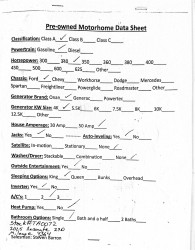 Pre-owned Motorhome Data Sheet
Classification: Class A ✓ Class B Class C
Powertrain: Gasoline ✓ Diesel
Horsepower: 300 340 350 360 380 400
450 500 600 625 Other
Chassis: Ford ✓ Chevy Workhorse Dodge Mercedes
Spartan Freightliner Powerglide Roadmaster Other
Generator Brand: Onan ✓ Generac Powertec
Generator KW Size: 4K 5.5K 6K 7.5K 8K 10K
12.5K Other
House Amperage: 30 Amp 50 Amp ✓
Jacks: Yes ✓ No Auto-leveling: Yes No
Satellite: In-motion Stationary None
Washer/Dryer: Stackable Combination None
Outside Entertainment: Yes No
Sleeping Options: King Queen Bunks Overhead
Inverter: Yes No
A/C's: 1 2 3
Heat Pump: Yes No
Bathroom Options: Single Bath and a half 2 Baths
Stock#
2015
Salesperson: Steven Barron